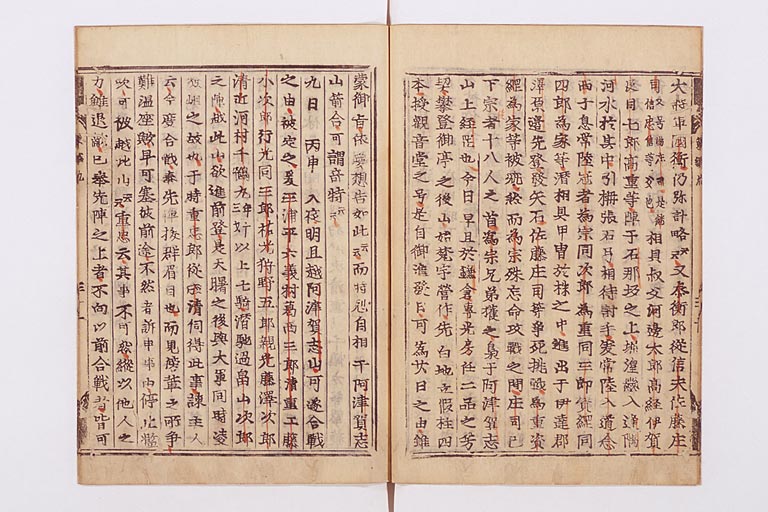 大将軍国衡仍弥計略云々又泰衡郎從信夫佐藤庄
司又号湯庄司是継信忠信等父也相具叔父河邊太郎高経伊賀
良目七郎高重等陣于石那坂之上堀湟懸入逢隈
河水於其中引柵張石弓相待討手爰常陸入道念
西子息常陸冠者為宗同次郎為重同三郎資綱同
四郎為家等潜相具甲冑於秣之中進出于伊達郡
澤原邊先登發矢石佐藤庄司等爭死挑戦為重資
綱為家等被疵然而為宗殊忘命攻戦之間庄司已
下宗者十八人之首為宗兄弟獲之梟于阿津賀志
山上経岡也云々今日早旦於鎌倉専光房任二品之芳
契攀登御亭之後山始梵宇営作先白地立假柱四
本授観音堂之号是自御進發日可為廿日之由雖
蒙御旨依夢想告如此云々而時尅自相于阿津賀志
山箭合可謂奇特云々
九日 丙申 入夜明旦越阿津賀志山可遂合戦
之由被定之爰三浦平六義村葛西三郎清重工藤
小次郎行光同三郎祐光狩野五郎親光藤澤次郎
清近河村千鶴丸年十三才以上七騎潜馳過畠山次郎
之陣越此山欲進前登是天曙之後與大軍同時凌
嶮岨之故也于時重忠郎從成清伺得此事諫主人
云今度合戦奉先陣抜群眉目也而見傍輩之所争
難温座歟早可塞彼前途不然者訴申事由停止濫
吹可被越此山云々重忠云其事不可然縦以他人之
力雖退敵已奉先陣之上者不向以前合戦者皆可